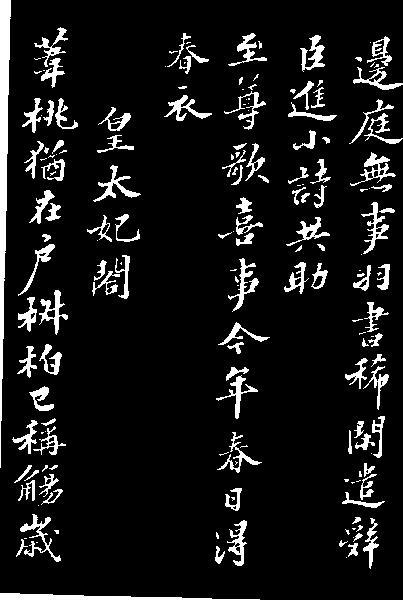 邊庭無事羽書稀閑遣辭
臣進小詩共助
至尊歌喜事今年春日得
春衣
皇太妃閣
葦桃猶在戶椒柏已稱觴歲